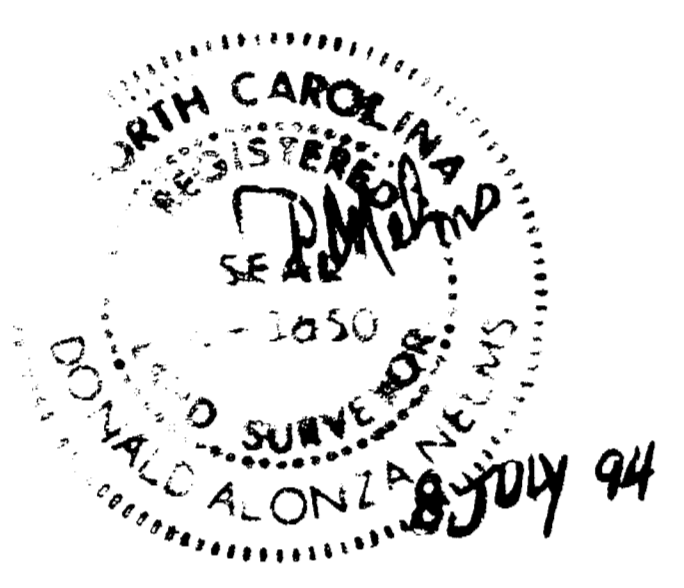 ORTH CAROLINA
REGISTERED
SEAL
-1050
LAND SURVEYOR
DONALD ALONZA NELMS
8 JULY 94